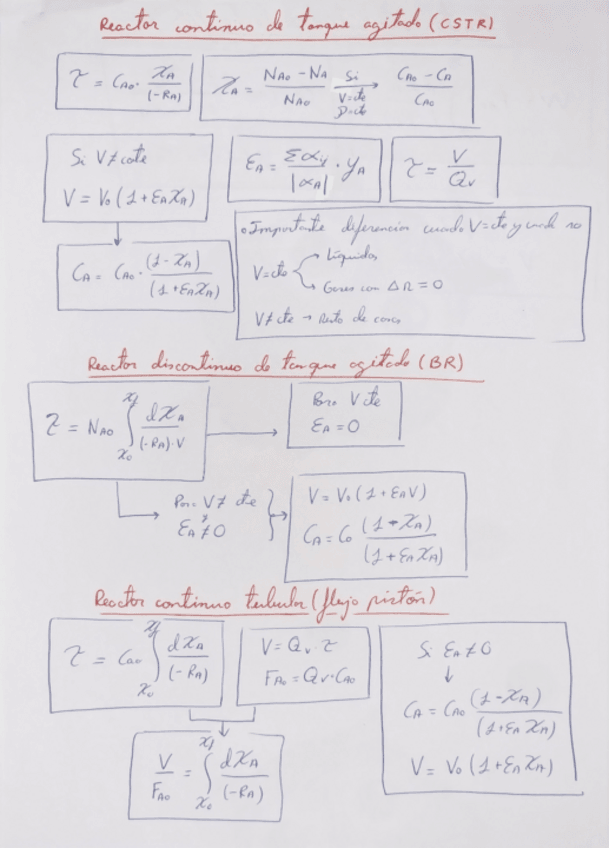 Reactor continuo de tanque agitado (CSTR)
τ = C_A0 · X_A / (-R_A)
X_A = (N_A0 - N_A) / N_A0 —Si V=cte P=cte→ (C_A0 - C_A) / C_A0
Si V≠cte
V = V_0 (1 + ε_A X_A)
ε_A = Σα_ij / |α_A| · y_A
τ = V / Q_v
C_A = C_A0 · (1 - X_A) / (1 + ε_A X_A)
Importante diferenciar cuando V=cte y cuando no
V=cte → Líquidos
→ Gases con Δn = 0
V≠cte → Resto de casos
Reactor discontinuo de tanque agitado (BR)
τ = N_A0 ∫_{X_0}^{X_f} dX_A / (-R_A)·V
Para V cte
ε_A = 0
Para V≠ cte
ε_A ≠ 0
V = V_0 (1 + ε_A V)
C_A = C_0 (1 + X_A) / (1 + ε_A X_A)
Reactor continuo tubular (flujo pistón)
τ = C_A0 ∫_{X_0}^{X_f} dX_A / (-R_A)
V = Q_v · τ
F_A0 = Q_v · C_A0
Si ε_A ≠ 0
↓
C_A = C_A0 (1 - X_A) / (1 + ε_A X_A)
V = V_0 (1 + ε_A X_A)
V / F_A0 = ∫_{X_0}^{X_f} dX_A / (-R_A)